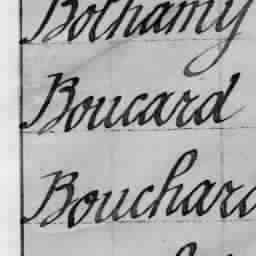 Bothamy
Boucard
Bouchard